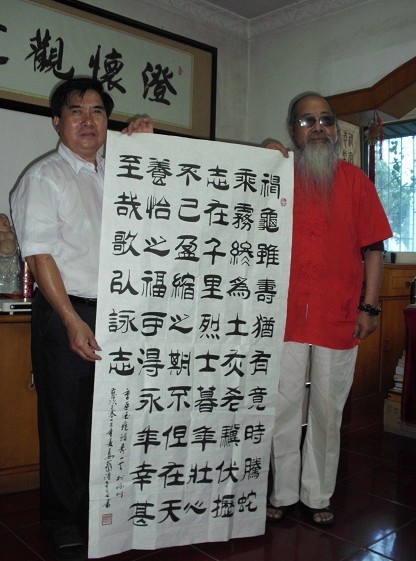 澄懷觀
神龜雖壽猶有竟時騰蛇
乘霧終為土灰老驥伏櫪
志在千里烈士暮年壯心
不已盈縮之期不但在天
養怡之福可得永年幸甚
至哉歌以詠志